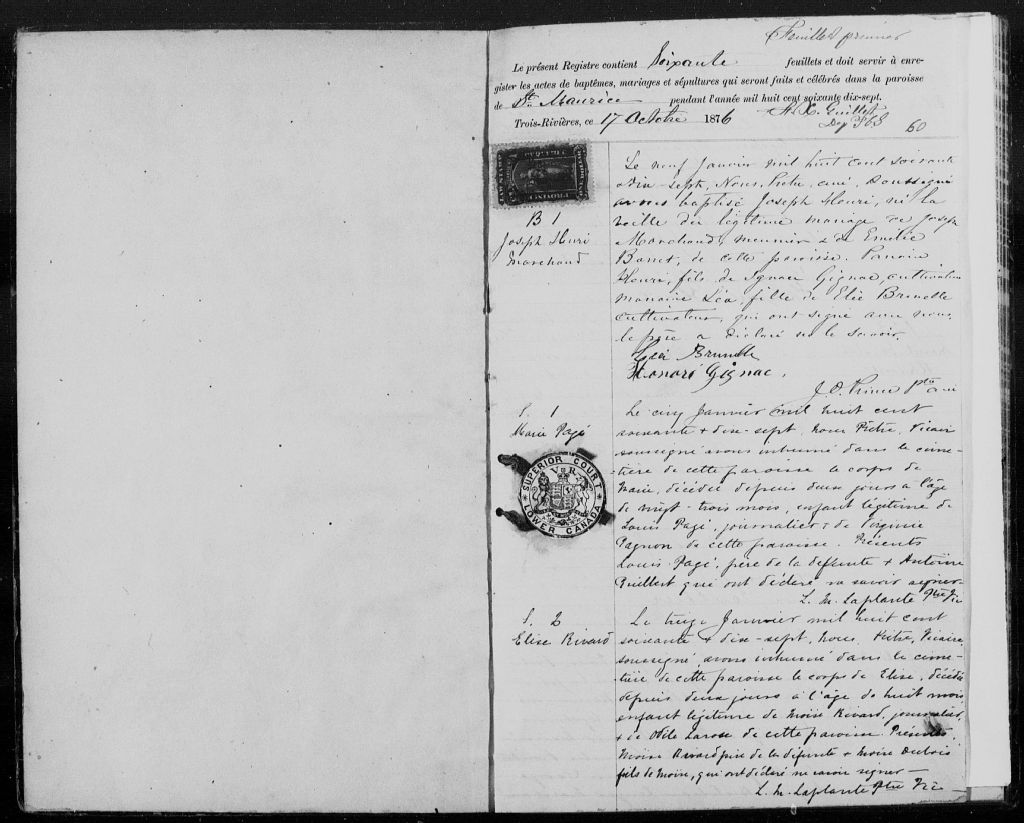 Feuillet premier
Le présent Registre contient Soixante feuillets et doit servir à enre-
gistrer les actes de baptêmes, mariages et sépultures qui seront faits et célébrés dans la paroisse
de St. Maurice pendant l'année mil huit cent soixante dix-sept.
Trois-Rivières, ce 17 Octobre 1876 Guillet
Dep
60
B 1
Joseph Henri
Marchand
Le neuf Janvier mil huit cent soixante
& dix-sept, Nous, Prêtre, curé, soussigné
avons baptisé Joseph Henri, né la
veille du légitime mariage de Joseph
Marchand, meunier & de Emélie
de cette paroisse. Parrain
Henri, fils de Ignace Gignac, cultivateur
marraine Léa, fille de Elie Brunelle
cultivateur, qui ont signé avec nous.
le père a déclaré ne le savoir.
Léa Brunelle
Honoré Gignac.
J. O. Prince Ptre curé
S. 1
Marie Pagé
SUPERIOR COURT
V R
LOWER CANADA
Le cinq Janvier mil huit cent
soixante & dix-sept, nous Prêtre, Vicaire
soussigné avons inhumé dans le cime-
tière de cette paroisse le corps de
Marie, décédée depuis deux jours à l'âge
de vingt-trois mois, enfant légitime de
Louis Pagé, journalier & de Virginie
Gagnon de cette paroisse. Présents
Louis Pagé, père de la défunte & Antoine
Guillet qui ont déclaré ne savoir signer.
L. M. Laplante Ptre Vic
S. 2
Elise Rivard
Le treize Janvier mil huit cent
soixante & dix-sept, nous, Prêtre, Vicaire
soussigné, avons inhumé dans le cime-
tière de cette paroisse le corps de Elise, décédée
depuis deux jours à l'âge de huit mois
enfant légitime de Moïse Rivard, journalier,
& de Odile Larose de cette paroisse. Présents,
Moïse Rivard père de la défunte & Moïse Dubois
fils de Moïse, qui ont déclaré ne savoir signer—
L. M. Laplante Ptre Vic—